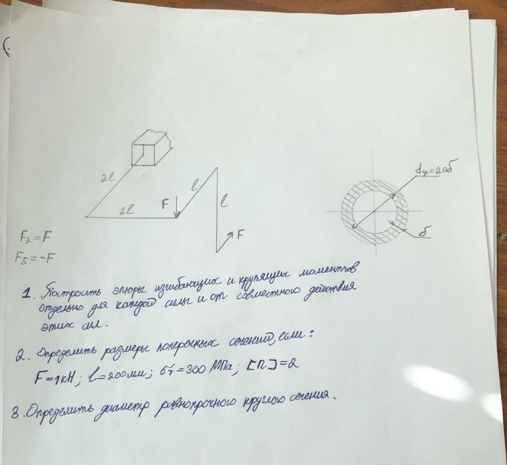 2l
2l
F
l
l
F
dф=20δ
δ
F₂=F
F₅=-F
1. Построить эпюры изгибающих и крутящих моментов
отдельно для каждой силы и от совместного действия
этих сил.
2. Определить размеры поперечных сечений, если:
F=1кН; l=200мм; σт=300 МПа; [n]=2
3. Определить диаметр равнопрочного круглого сечения.